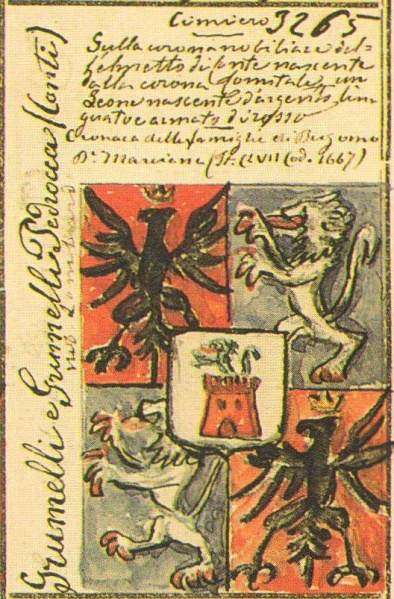 Cimiero 3265
Sulla corona nobiliare del=
l'elmetto di fonte nascente
alla corona Comitale, un
Leone nascente d'argento, lin
guato e armato di rosso
Cronaca delle famiglie di Bergamo
Bª Marciana (It. CLVII Cod. 1667)
Grumelli e Grumelli Pedrocca (Conti)